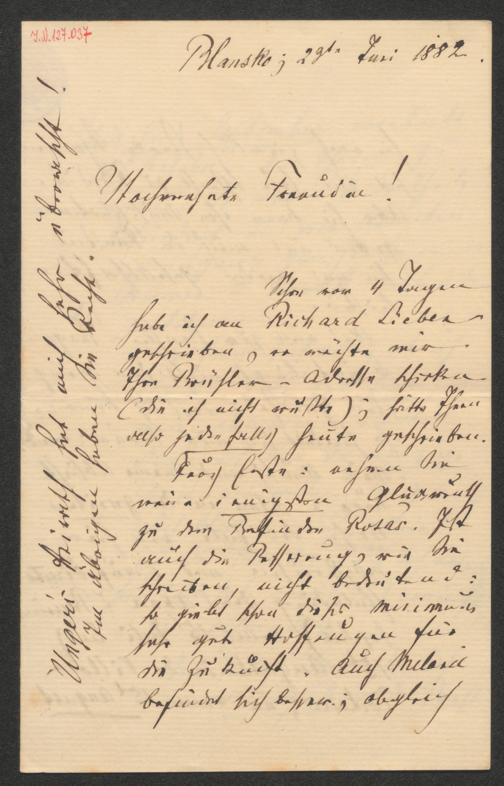 I.N. 127.037
Blansko; 29te Juni 1882.
Hochverehrte Freundin!
Schon vor 4 Tagen
habe ich an Richard Lieben
geschrieben, er möchte mir
Ihre Brühler-Adresse schicken
(die ich nicht wußte); hätte Ihnen
also jedenfalls heute geschrieben.
Fürs Erste: nehmen Sie
meine innigsten Glückwünsche
zu dem Befinden Rosas. Ist
auch die Besserung, wie Sie
schreiben, nicht bedeutend:
so giebt schon dieses minimum
sehr gute Hoffnungen für
die Zukunft. Auch
befindet sich besser; obgleich
Ungers Heirath hat mich sehr überrascht!
Im Übrigen haben Sie Recht.